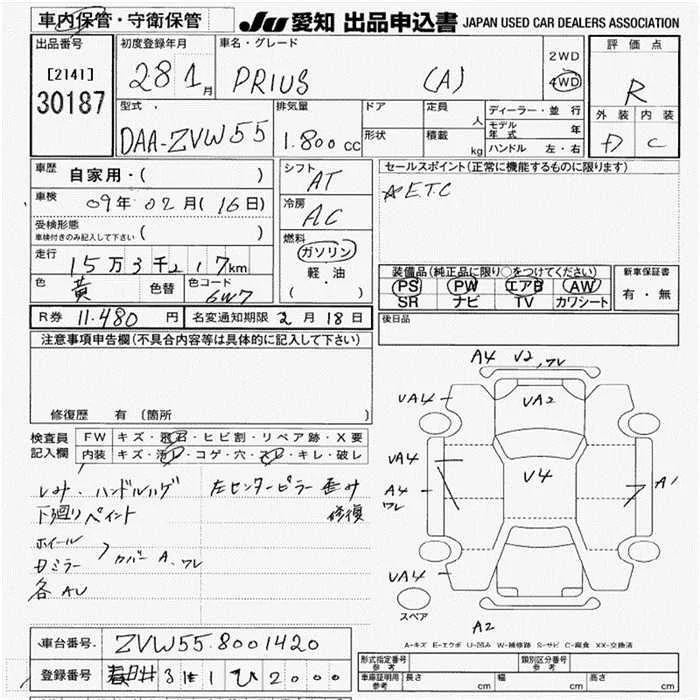 車内保管・守衛保管 JU 愛知 出品申込書 JAPAN USED CAR DEALERS ASSOCIATION
出品番号 初度登録年月 車名・グレード 2WD 4WD 評価点
[2141] 30187 28 1月 PRIUS (A) R
外装 内装
D C
型式 排気量 ドア 定員 人 ディーラー・並行
モデル年式 年
DAA-ZVW55 1.800cc 形状 積載 kg ハンドル 左・右
車歴 自家用・( ) シフト AT セールスポイント(正常に機能するものに限ります)
車検 09年 02月(16日) 冷房 AC ☆ETC
受検形態 ( )
車検付きのみ記入して下さい
燃料 ガソリン 軽油 ・( )
走行 15万3千217km
装備品(純正品に限り○をつけてください) 新車保証書
PS PW エアB AW 有・無
SR ナビ TV カワシート
色 黄 色替 色コード 6W7
R券 11.480円 名変通知期限 2月18日 後日品
注意事項申告欄(不具合内容等は具体的に記入して下さい)
修復歴 有(箇所
検査員記入欄 FW キズ・飛石・ヒビ割・リペア跡・X要
内装 キズ・汚れ・コゲ・穴・スレ・キレ・破レ
シミ・ハンドルハゲ 左センターピラー歪み
下廻りペイント 修復
ホイール
ミラー カバー A、ワレ
各AU
A4 V2,ワレ
UA4 UA2
UA4 V4
A4 ワレ A1
UA4
スペア
A2
A-キズ E-エクボ U-凹み W-補修跡 S-サビ C-腐食 XX-交換済
車台番号 ZVW55-8001420
登録番号 春日井 341 ひ 2000
形式指定番号 参考 類別区分番号 参考
車庫証明用 参考 長さ cm 幅 cm 高さ cm